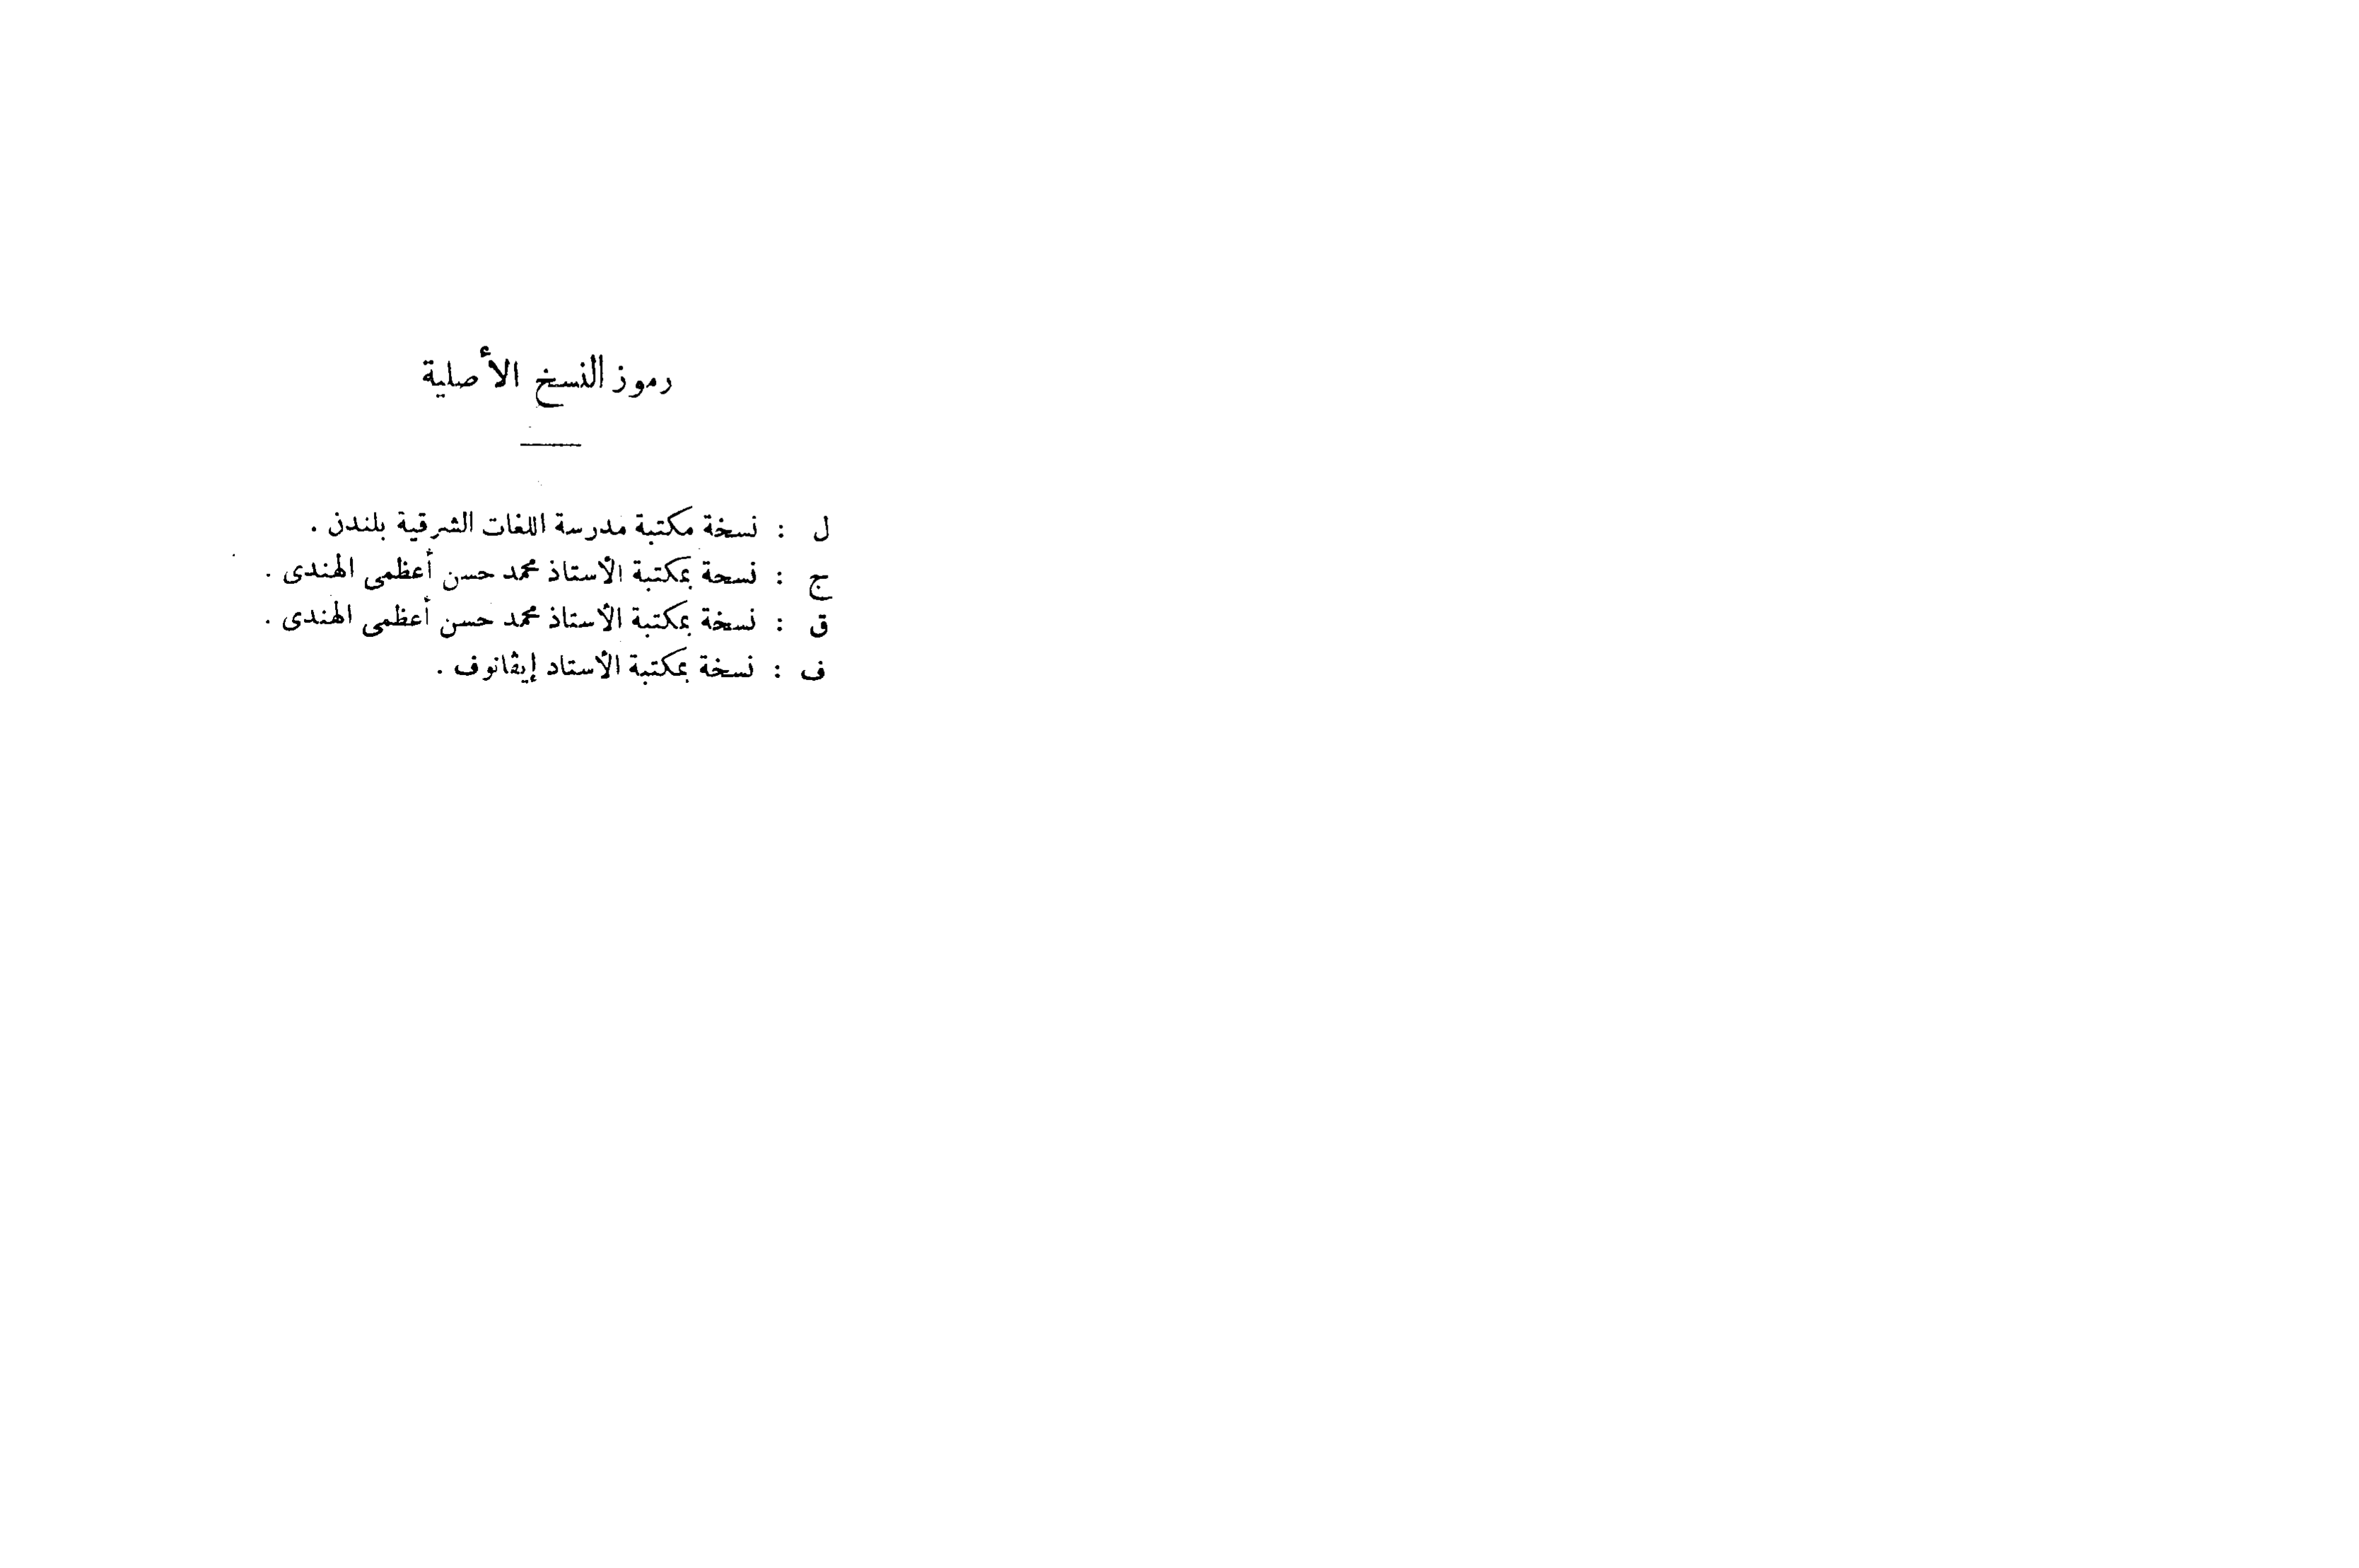 رموز النسخ الأصلية
ل : نسخة مكتبة مدرسة اللغات الشرقية بلندن .
ج : نسخة بمكتبة الأستاذ محمد حسن أعظمى الهندى .
ق : نسخة بمكتبة الأستاذ محمد حسن أعظمى الهندى .
ف : نسخة بمكتبة الأستاذ إيڤانوف .